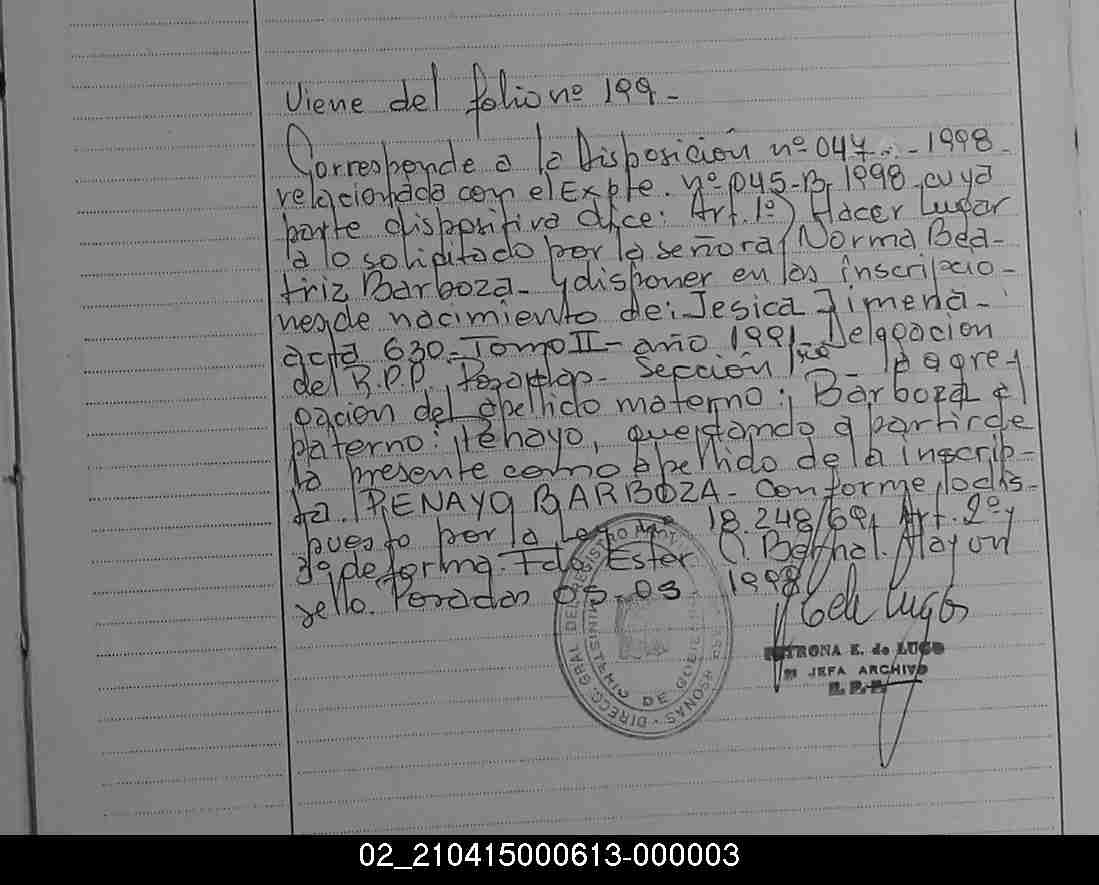 Viene del folio nº 199-
Corresponde a la Disposición nº 047 - 1998
relacionada con el Expte. nº 045-B, 1998, cuya
parte dispositiva dice: Art. 1º) Hacer Lugar
a lo solicitado por la señora Norma Bea-
triz Barboza- y disponer en las inscripcio-
nes de nacimiento de: Jesica Jimena-
acta 630- Tomo II- año 1991- Delgacion
del R.P.P. Posadas- Sección 1ra- la agre-
gacion del apellido materno: Barboza al
paterno: Penayo, quedando a partir de
la presente como apellido de la inscrip-
ta. PENAYO BARBOZA- Conforme lo dis-
puesto por la Ley 18.248/69, Art. 2º y
3º de forma. Fdo Ester
sello. Posadas 05-03 1998
PETRONA E. de LUGO
JEFA ARCHIVO
R.P.P.
DIRECC. GRAL. DEL REGISTRO
MINISTERIO DE GOBIERNO
02_210415000613-000003